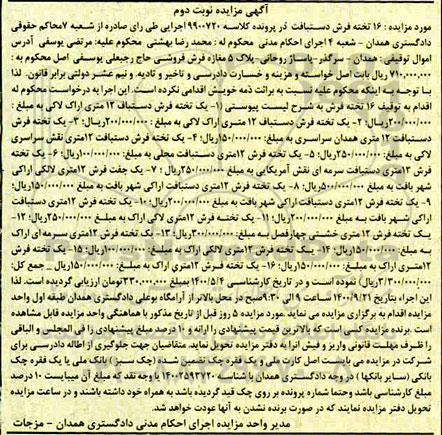 آگهی مزایده نوبت دوم
مورد مزایده : ۱۶ تخته فرش دستبافت در پرونده کلاسه ۹۹۰۷۲۰ اجرایی طی رای صادره از شعبه ۷ محاکم حقوقی
دادگستری همدان - شعبه ۴ اجرای احکام مدنی محکوم له : محمد رضا بهشتی محکوم علیه: مرتضی یوسفی آدرس
اموال توقیفی : همدان - سرگذر - پاساژ روحانی - پلاک ۵ مغازه فرش فروشی حاج رجبعلی یوسفی اصل محکوم به :
۷۱۰,۰۰۰,۰۰۰ ریال بابت اصل خواسته و هزینه و خسارت دادرسی و تاخیر و تادیه و نیم عشر دولتی برابر قانون. لذا
با توجه به اینکه محکوم علیه نسبت به برائت ذمه خویش اقدامی نکرده است. از به درخواست محکوم له
اقدام به توقیف ۱۶ تخته فرش به شرح لیست پیوستی (۱- یک تخته فرش دستباف ۱۲ متری اراک لاکی به مبلغ :
۲۰۰/۰۰۰/۰۰۰ریال؛ ۲- یک تخته فرش دستبافت ۱۲ متری اراک لاکی به مبلغ : ۲۰۰/۰۰۰/۰۰۰ریال؛ ۳- یک تخته فرش
دستبافت ۱۲ متری همدان سراسری به مبلغ: ۱۵۰/۰۰۰/۰۰۰ریال؛ ۴- یک تخته فرش دستبافت ۱۲متری نقش سراسری
لاکی به مبلغ: ۲۵۰/۰۰۰/۰۰۰ریال؛ ۵- یک تخته فرش ۱۲متری دستبافت محلی به مبلغ: ۱۰۰/۰۰۰/۰۰۰ریال؛ ۶- یک تخته
فرش ۱۲متری دستبافت سرمه ای نقش آمریکایی به مبلغ ۲۵۰/۰۰۰/۰۰۰ریال ؛ ۷- یک جفت فرش ۱۲متری لاکی اراکی
شهر بافت به مبلغ ۵۰۰/۰۰۰/۰۰۰ریال؛ ۸- یک تخته فرش ۱۲متری دستبافت اراکی شهر بافت به مبلغ ۱۵۰/۰۰۰/۰۰۰ریال؛
۹- یک تخته فرش ۱۲متری دستبافت اراکی شهر بافت به مبلغ ۲۰۰/۰۰۰/۰۰۰ریال؛ ۱۰- یک تخته فرش ۱۲متری دستبافت
اراکی شهر بافت به مبلغ ۲۰۰/۰۰۰/۰۰۰ریال؛ ۱۱- یک تخته فرش ۱۲متری لاکی اراک به مبلغ: ۲۵۰/۰۰۰/۰۰۰ریال؛ ۱۲-
یک تخته فرش ۱۲متری خشتی چهارفصل به مبلغ: ۳۰۰/۰۰۰/۰۰۰ریال؛ ۱۳- یک تخته فرش ۱۲متری سرمه ای اراک
به مبلغ: ۱۵۰/۰۰۰/۰۰۰ریال؛ ۱۴- یک تخته فرش ۱۲متری لاکی اراک به مبلغ: ۱۰۰/۰۰۰/۰۰۰ریال؛ ۱۵- یک تخته فرش
۱۲متری اراک به مبلغ: ۱۵۰/۰۰۰/۰۰۰ریال؛ ۱۶- یک تخته فرش ۱۲متری اراک به مبلغ: ۱۵۰/۰۰۰/۰۰۰ریال _ جمع کل:
۳/۳۰۰/۰۰۰/۰۰۰ریال) نموده است و در تاریخ کارشناسی ۱۴۰۰/۵/۴ مبلغ ۳۳۰,۰۰۰,۰۰۰تومان ارزیابی گردیده است. لذا
این اجراء بتاریخ ۱۴۰۰/۹/۲۱ ساعت ۹ الی ۹:۳۰صبح در محل بالاتر از آرامگاه بوعلی دادگستری همدان طبقه اول واحد
مزایده اقدام به برگزاری مزایده می نماید .مورد مزایده ۵ روز قبل از تاریخ مذکور با هماهنگی واحد مزایده قابل مشاهده
است .برنده مزایده کسی است که بالاترین قیمت پیشنهادی را ارائه و ۱۰ درصد مبلغ پیشنهادی را فی المجلس و الباقی
را ظرف مهلت قانونی واریز و فیش آنرا به دفتر مزایده تحویل نماید. متقاضیان جهت جلوگیری از اطاله دادرسی برای
شرکت در مزایده می بایست اصل کارت ملی و یک فقره چک تضمین شده (چک سبز) بانک ملی یا یک فقره چک
بانکی (سایر بانکها ) در وجه دادگستری همدان باشناسه ۱۴۰۰۲۵۹۳۷۲۰ یا وجه نقد که مبلغ آن میبایست ۱۰ درصد
مبلغ کارشناسی باشد وحتما شماره پرونده بر روی چک قید گردیده باشد به همراه خود داشته باشند و در ساعت مزایده
تحویل دفتر مزایده نمایند که در صورت برنده نشدن به آنها عودت خواهد شد.
مدیر واحد مزایده اجرای احکام مدنی دادگستری همدان - مزجات